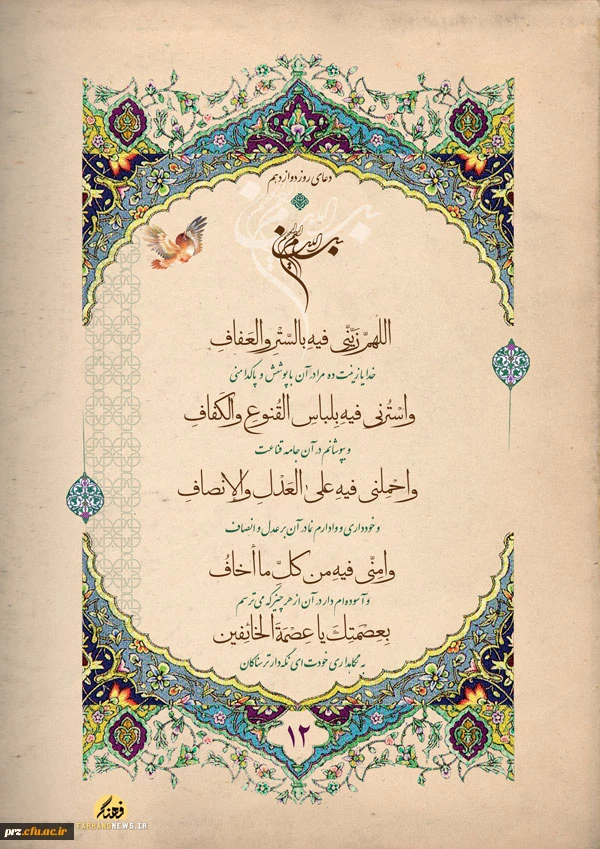 دعای روز دوازدهم
بسم الله الرحمن الرحیم
اللهمَّ زَیِّنّی فیهِ بالسِّتْرِ والعَفافِ
خدایا زینت ده مرا در آن با پوشش و پاکدامنی
واسْتُرنی فیهِ بِلِباسِ القُنوعِ والکَفافِ
و بپوشانم در آن جامه قناعت
واحْمِلنی فیهِ علیٰ العَدْلِ والإنصافِ
و خودداری و وادارم نما در آن بر عدل و انصاف
وامِنّی فیهِ من کلِّ ما أخافُ
و آسوده‌ام دار در آن از هر چیز که می‌ترسم
بِعِصْمَتِكَ یا عِصْمَةَ الخائِفین
به نگاهداری خودت ای نگه‌دار ترسناکان
۱۲
فرهنگ
FARHANGNEWS.IR
prz.cfu.ac.ir